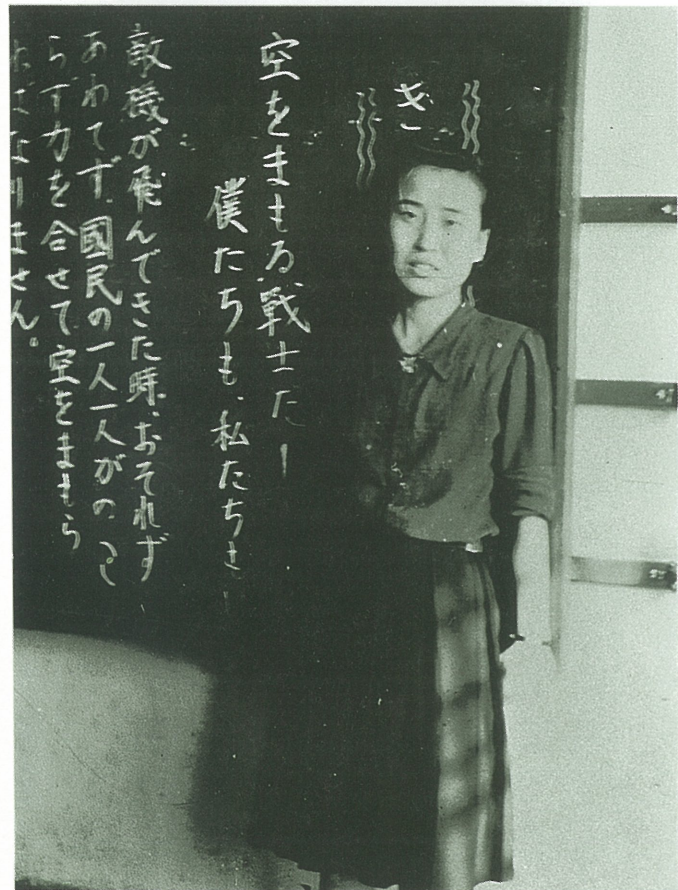 空をまもる戦士だ！
僕たちも、私たちも、
敵機が飛んできた時、おそれず、
あわてず、國民の一人一人がのこ
らず力を合せて、空をまもら
ねばなりません。